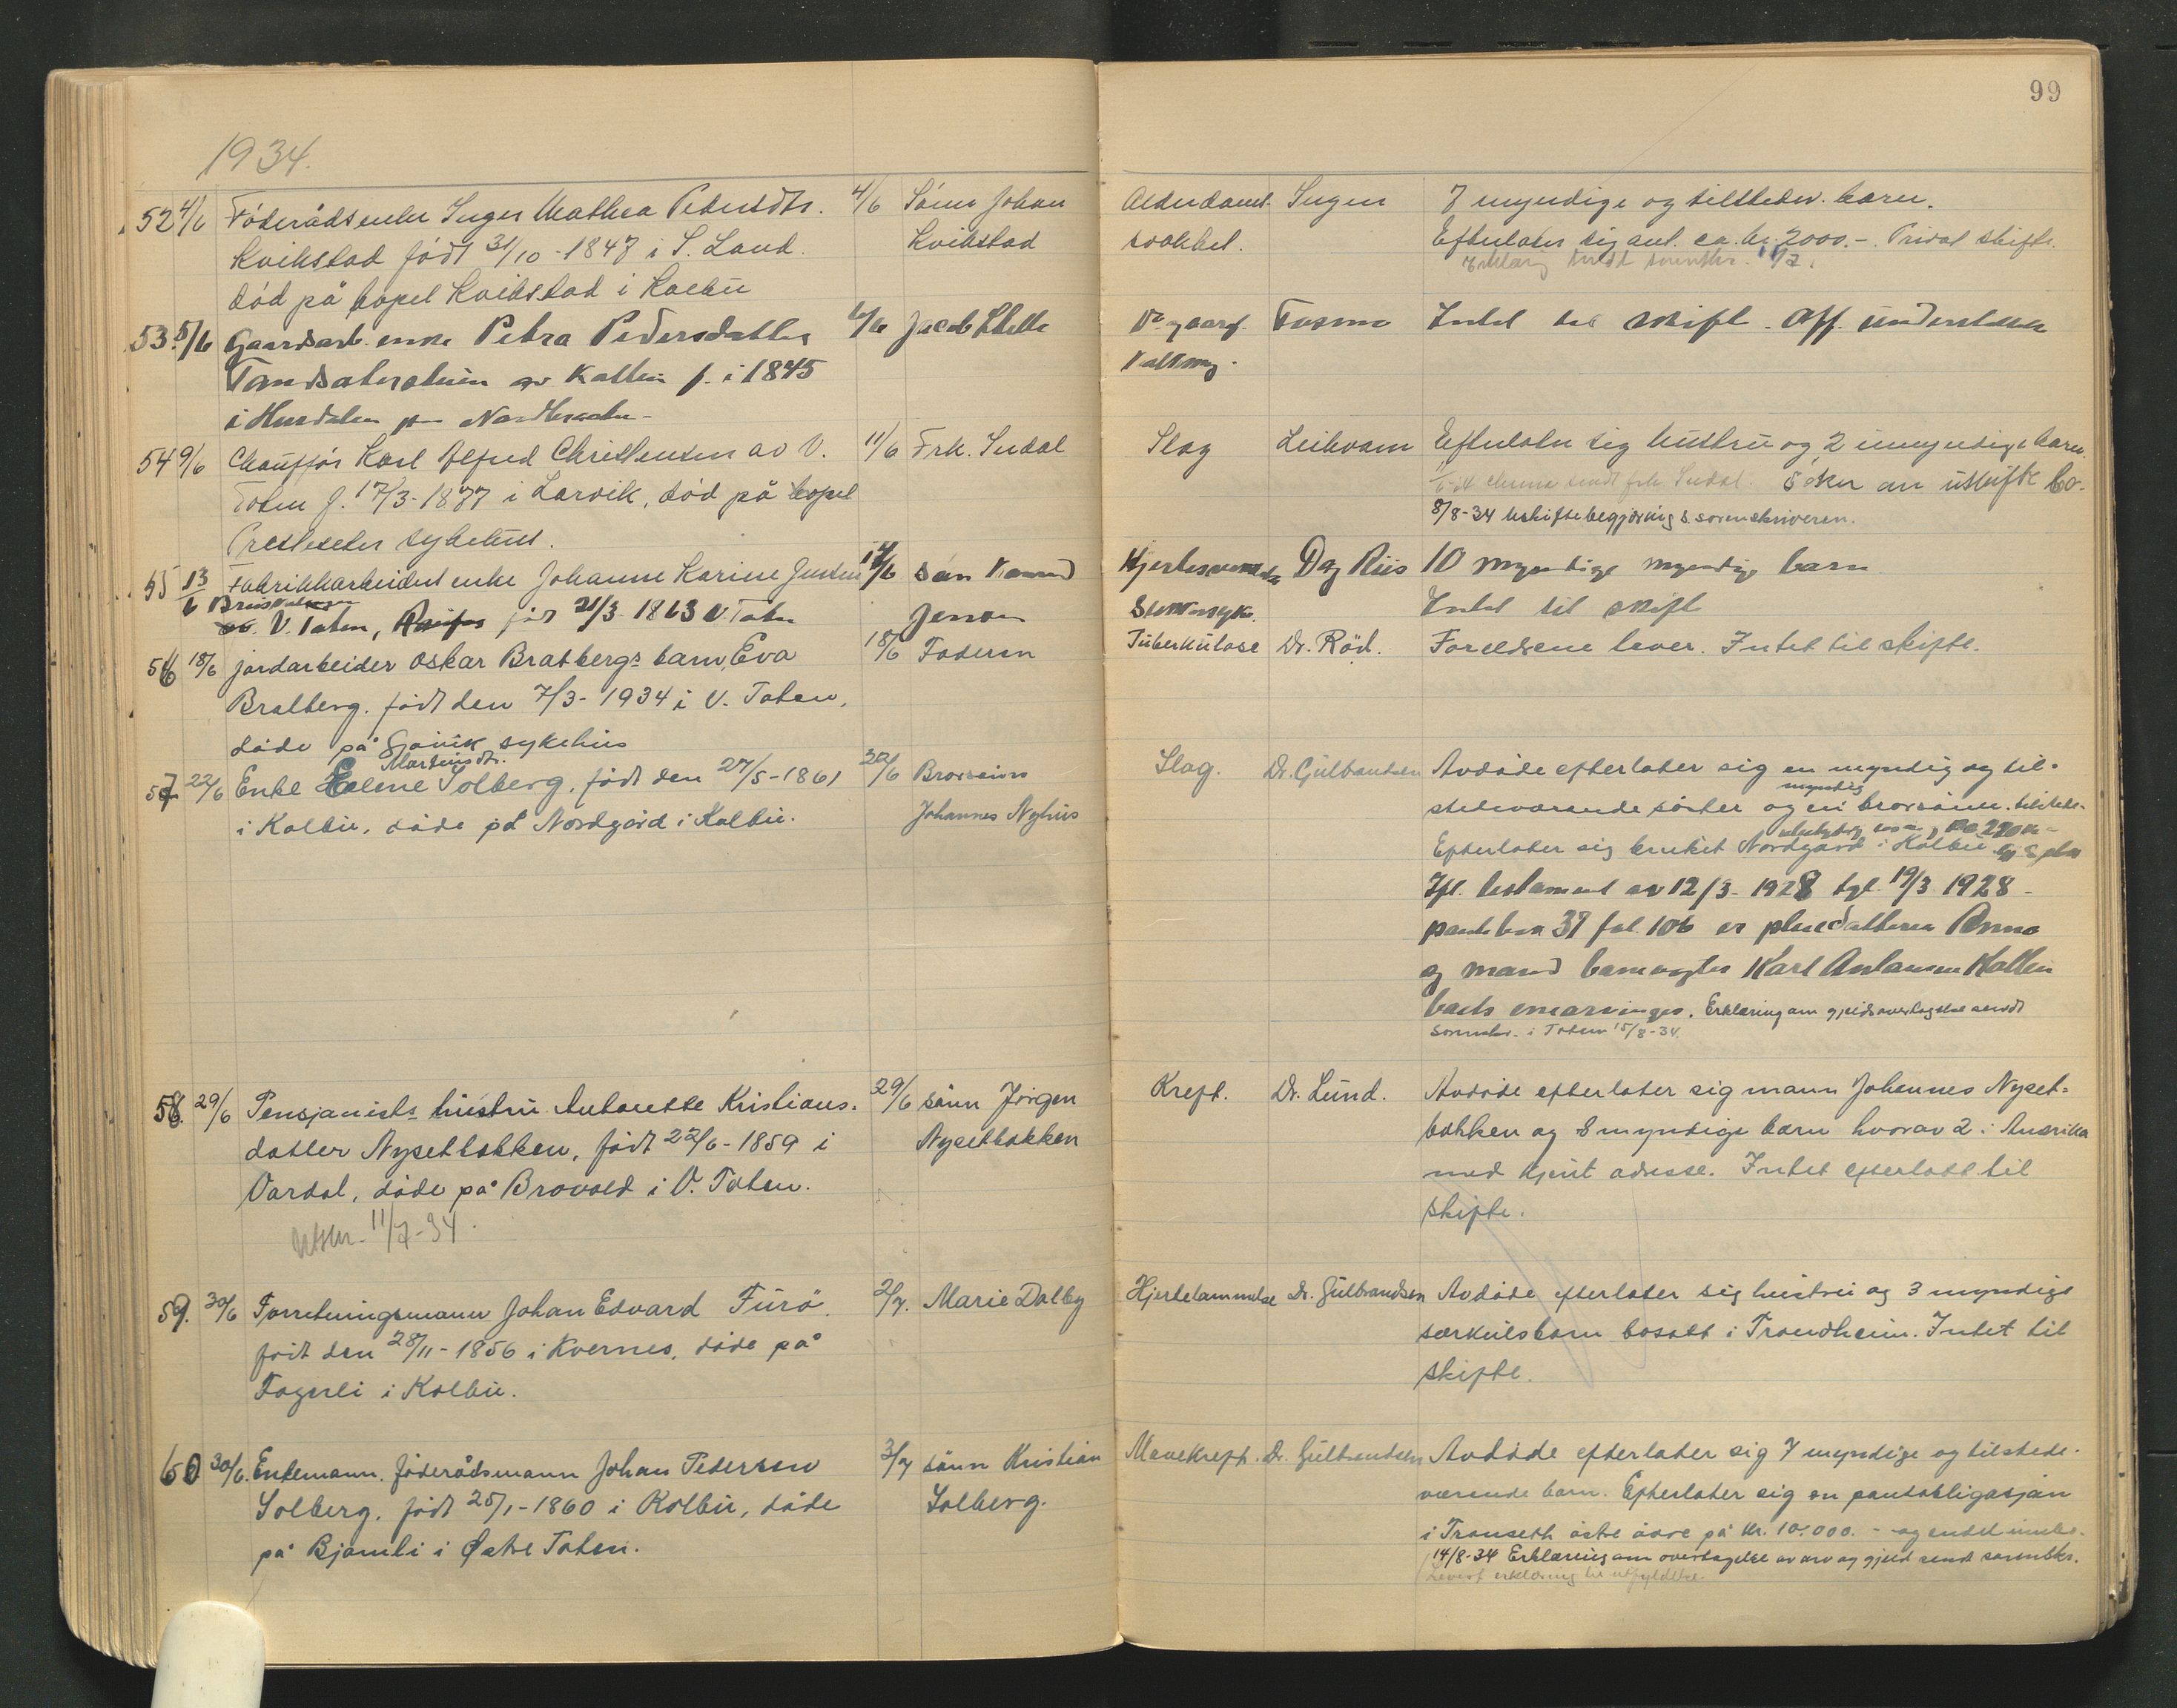 99
1934.
52 4/6 Föderådsenke Inger Mathea Pedersdtr. 4/6 Sönn Johan
Kvikstad född 31/10-1847 i S. Land. Kvikstad
död på bopel Kvikstad i Kolbu
Alderdoms- Ingen 7 myndige og tilstedev. barn.
svakhet. Efterlater sig ant. ca. kr. 2000.- Privat skifte.
Erklæring sendt sorenskr.
53. 5/6 Gaardsarb. enke Petra Pedersdatter 6/6 Jacob
av Kolbu f. i 1845
i Hurdalen
Intet til skifte. Off. understøttet
54 9/6 Chauffør Karl Alfred Christensen av V. 11/6 Frk. Sudal
Toten f. 17/3-1877 i Larvik, död på bopel
Presteseter sykehus.
Slag Leikvam Efterlater sig hustru og 2 umyndige barn.
sendt frk. Sudal. Söker om uskifte bo-
8/8-34 Uskiftebegjøring s. sorenskriveren.
55 13/6 Fabrikkarbeiders enke Johanne Karine Jensen 14/6 Sön
V. Toten, Raufos föd 21/3 1863 V. Toten Jensen
Dag Riis 10 myndige myndige barn
Intet til skifte
56 18/6 jordarbeider Oskar Bratbergs barn, Eva 18/6 Faderen
Bratberg. födt den 7/3-1934 i V. Toten,
döde på Gjövik sykehus
Tuberkulose Dr. Röd. Foreldrene lever. Intet til skifte.
57 22/6 Enke Helene Martinusdtr. Solberg, födt den 27/5-1861 22/6 Brorsönn
i Kolbu, döde på Nordgård i Kolbu. Johannes Nyhus
Slag. Dr. Gulbrandsen Avdöde efterlater sig en myndig og til-
stedeværende söster og en myndig brorsönn. tilstede-
Efterlater sig bruket Nordgård i Kolbu
Ifl. testament av 12/3-1928 tgl. 19/3 1928-
pantebok 37 fol. 106 er pleiedatteren Anna
og mand banevogter Karl Antonsen Kolbu
boets enearvinger. Erklæring om gjeldsovertagelse sendt
sorenskr. i Toten 15/8-34.
58. 29/6 Pensjonists hustru Antonette Kristians- 29/6 sönn Jörgen
datter Nysetbakken, födt 22/6-1859 i Nysetbakken
Vardal, döde på Brovold i V. Toten.
11/7-34.
Kreft. Dr. Lund. Avdöde efterlater sig mann Johannes Nyset-
bakken og 8 myndige barn hvorav 2 i Amerika
med kjent adresse. Intet efterlatt til
skifte.
59. 30/6 Forretningsmann Johan Edvard Furö. 2/7. Marie Dalby
födt den 28/11-1856 i Kvernes, döde på
Fagerli i Kolbu.
Hjertelammelse Dr. Gulbrandsen Avdöde efterlater sig hustru og 3 myndige
særkulsbarn bosatt i Trondheim. Intet til
skifte.
60 30/6. Enkemann. föderådsmann Johan Pedersen 3/7 sönn Kristian
Solberg, födt 25/1-1860 i Kolbu, döde Solberg.
på Bjømli i Østre Toten.
Mavekreft. Dr. Gulbrandsen Avdöde efterlater sig 7 myndige og tilstede-
værende barn. Efterlater sig en pantobligasjon
i Transeth östre övre på kr. 10.000.- og endel innbo.
14/8-34 Erklæring om overtagelse av arv og gjeld sendt sorenskr.
Levert erklæring til utfyldelse.